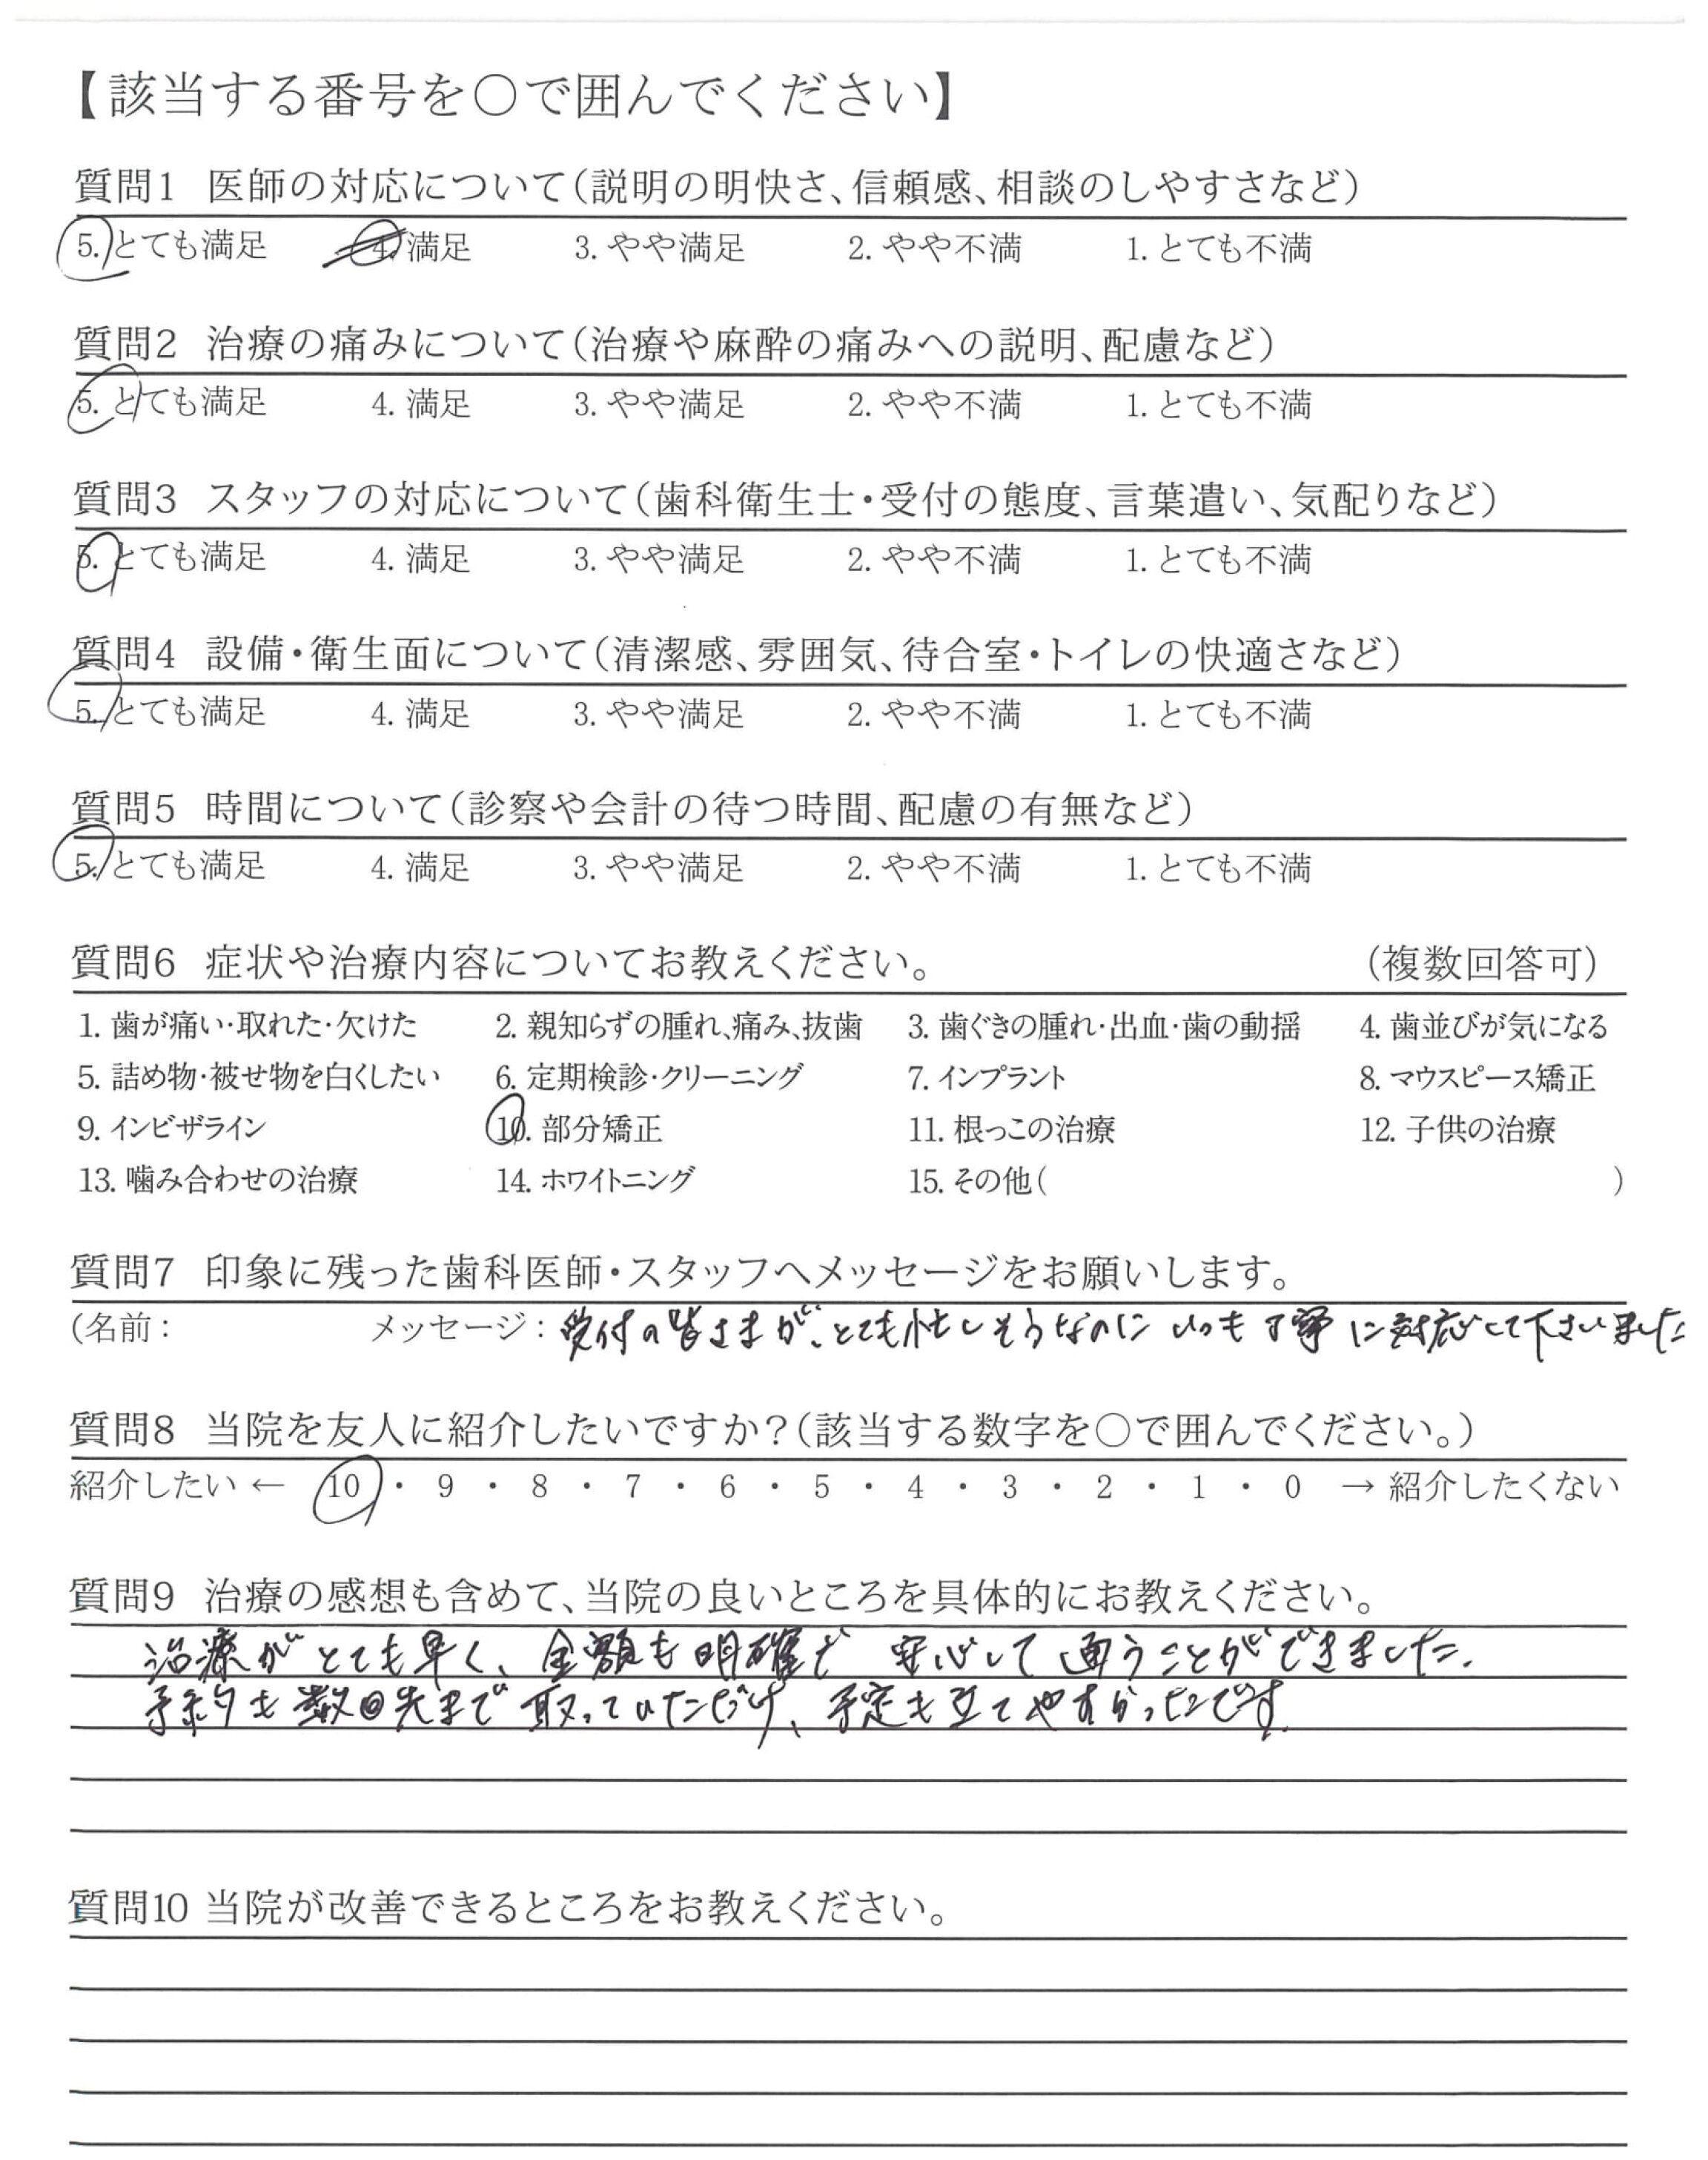 【該当する番号を〇で囲んでください】
質問1 医師の対応について（説明の明快さ、信頼感、相談のしやすさなど）
5. とても満足 4. 満足 3. やや満足 2. やや不満 1. とても不満
質問2 治療の痛みについて（治療や麻酔の痛みへの説明、配慮など）
5. とても満足 4. 満足 3. やや満足 2. やや不満 1. とても不満
質問3 スタッフの対応について（歯科衛生士・受付の態度、言葉遣い、気配りなど）
5. とても満足 4. 満足 3. やや満足 2. やや不満 1. とても不満
質問4 設備・衛生面について（清潔感、雰囲気、待合室・トイレの快適さなど）
5. とても満足 4. 満足 3. やや満足 2. やや不満 1. とても不満
質問5 時間について（診察や会計の待つ時間、配慮の有無など）
5. とても満足 4. 満足 3. やや満足 2. やや不満 1. とても不満
質問6 症状や治療内容についてお教えください。 （複数回答可）
1. 歯が痛い・取れた・欠けた 2. 親知らずの腫れ、痛み、抜歯 3. 歯ぐきの腫れ・出血・歯の動揺 4. 歯並びが気になる
5. 詰め物・被せ物を白くしたい 6. 定期検診・クリーニング 7. インプラント 8. マウスピース矯正
9. インビザライン 10. 部分矯正 11. 根っこの治療 12. 子供の治療
13. 噛み合わせの治療 14. ホワイトニング 15. その他（ ）
質問7 印象に残った歯科医師・スタッフへメッセージをお願いします。
（名前： メッセージ：受付の皆さまが、とても忙しそうなのにいつも丁寧に対応して下さいました
質問8 当院を友人に紹介したいですか？（該当する数字を〇で囲んでください。）
紹介したい ← 10 ・ 9 ・ 8 ・ 7 ・ 6 ・ 5 ・ 4 ・ 3 ・ 2 ・ 1 ・ 0 → 紹介したくない
質問9 治療の感想も含めて、当院の良いところを具体的にお教えください。
治療がとても早く、金額も明確で 安心して通うことができました.
予約も数回先まで取っていただけ、予定も立てやすかったです.
質問10 当院が改善できるところをお教えください。